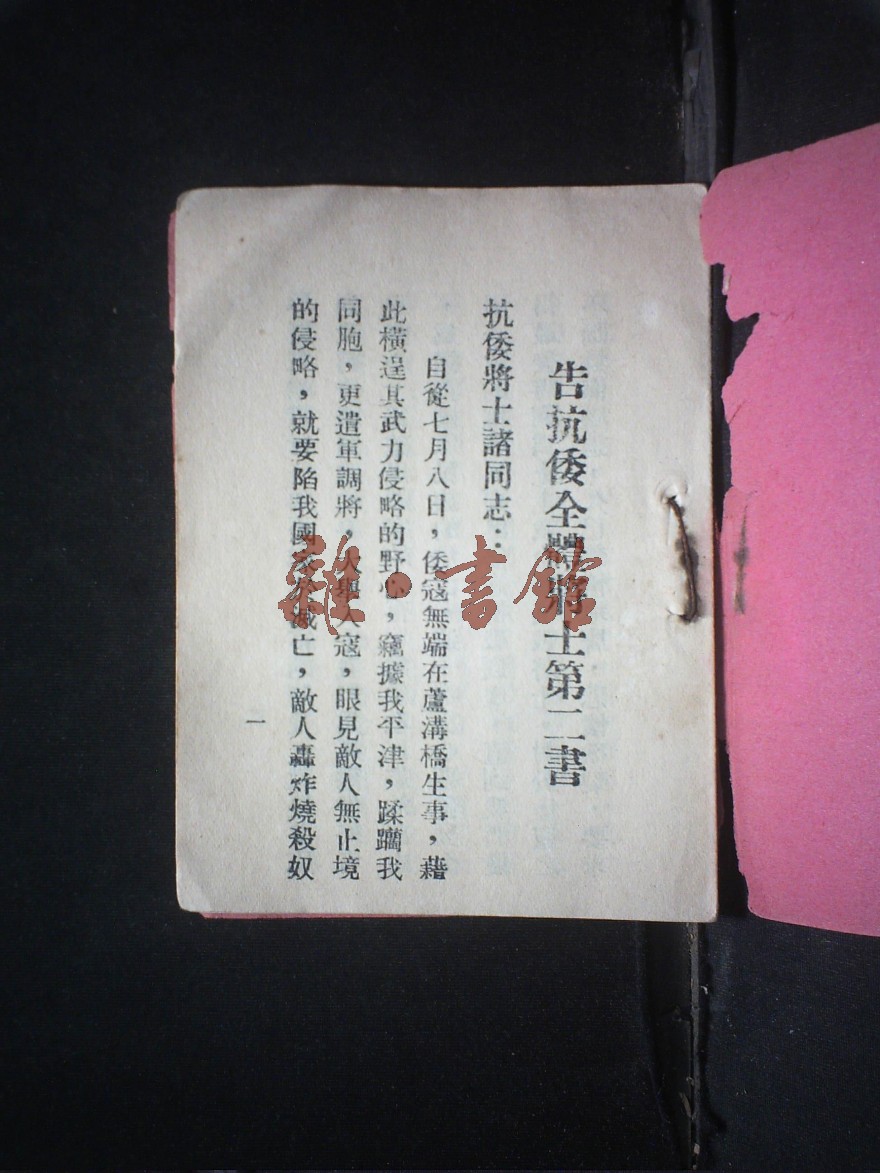 告抗倭全體將士第二書
抗倭將士諸同志：
自從七月八日，倭寇無端在蘆溝橋生事，藉
此橫逞其武力侵略的野心，竊據我平津，蹂躪我
同胞，更遣軍調將，大舉入寇，眼見敵人無止境
的侵略，就要陷我國家於滅亡，敵人轟炸燒殺奴
一
雜·書館